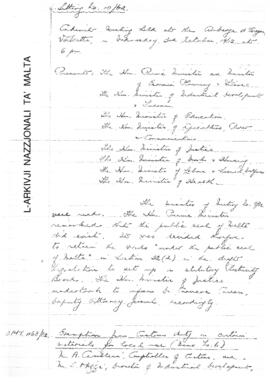 Sitting No. 10/62.
Cabinet Meeting held at the Auberge d'Aragon,
Valletta, on Wednesday 3rd October 1962 at
6 pm.
Present: The Hon. Prime Minister and Minister
of Economic Planning & Finance
The Hon. Minister of Industrial Development
& Tourism
The Hon. Minister of Education
The Hon. Minister of
& Communications
The Hon. Minister of Justice
The Hon. Minister of Works & Housing
The Hon. Minister of Labour & Social Welfare
The Hon. Minister of Health
The minutes of Meeting No. 9/62
were read. The Hon. Prime Minister
remarked that the public seal of Malta
did exist. It was decided therefore
to retain the words "under the public seal
of Malta" in Section in the draft
legislation to set up a statutory Electricity
Board. The Hon. Minister of Justice
undertook to inform
Deputy Attorney General accordingly.
Exemption from Customs duty on certain
materials for local use
M. A. Comptroller of Customs, and
M. Director of Industrial Development,
L-ARKIVJI NAZZJONALI TA' MALTA